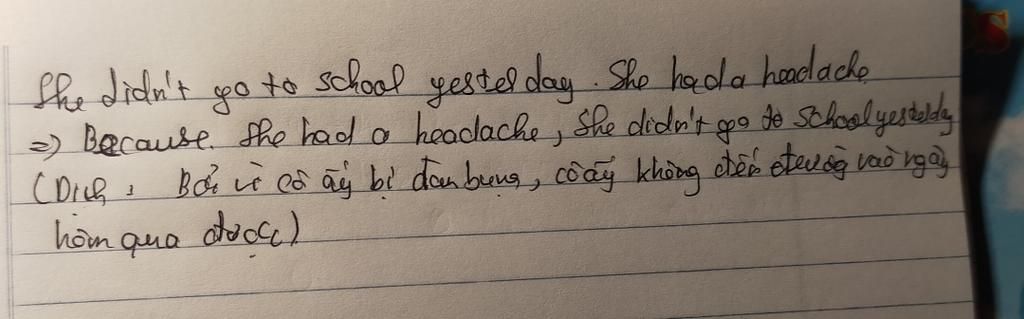 She didn't go to school yesterday. She had a headache
=) Because she had a headache, she didn't go to school yesterday
(Dịch: Bởi vì cô ấy bị đau bụng, cô ấy không đến trường vào ngày
hôm qua được)